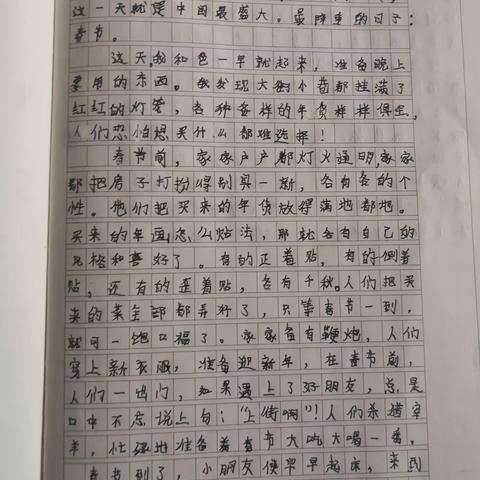 这一天就是中国最盛大。最隆重的日子：
春节。
这天我和爸一早就起来，准备晚上
要用的东西。我发现大街小巷都挂满了
红红的灯笼，各种各样的年货样样俱全，
人们恐怕想买什么都难选择！
春节前，家家户户都灯火通明，家家
都把房子打扮得别具一新，各有各的个
性。他们把买来的年货放得满地都地。
买来的年画怎么贴法，那就各有自己的
风格和喜好了。有的正着贴，有的倒着
贴，还有的歪着贴，各有千秋。人们把买
来的菜全部都弄好了，只等春节一到，
就可一饱口福了。家家备有鞭炮，人们
穿上新衣服，准备迎新年，在春节前，
人们一出门，如果遇上了好朋友，总是
口中不忘说上句："上街啊"！人们杀猪宰
羊，忙碌地准备着春节大吃大喝一番。
春节到了，小朋友便早早起床，来到